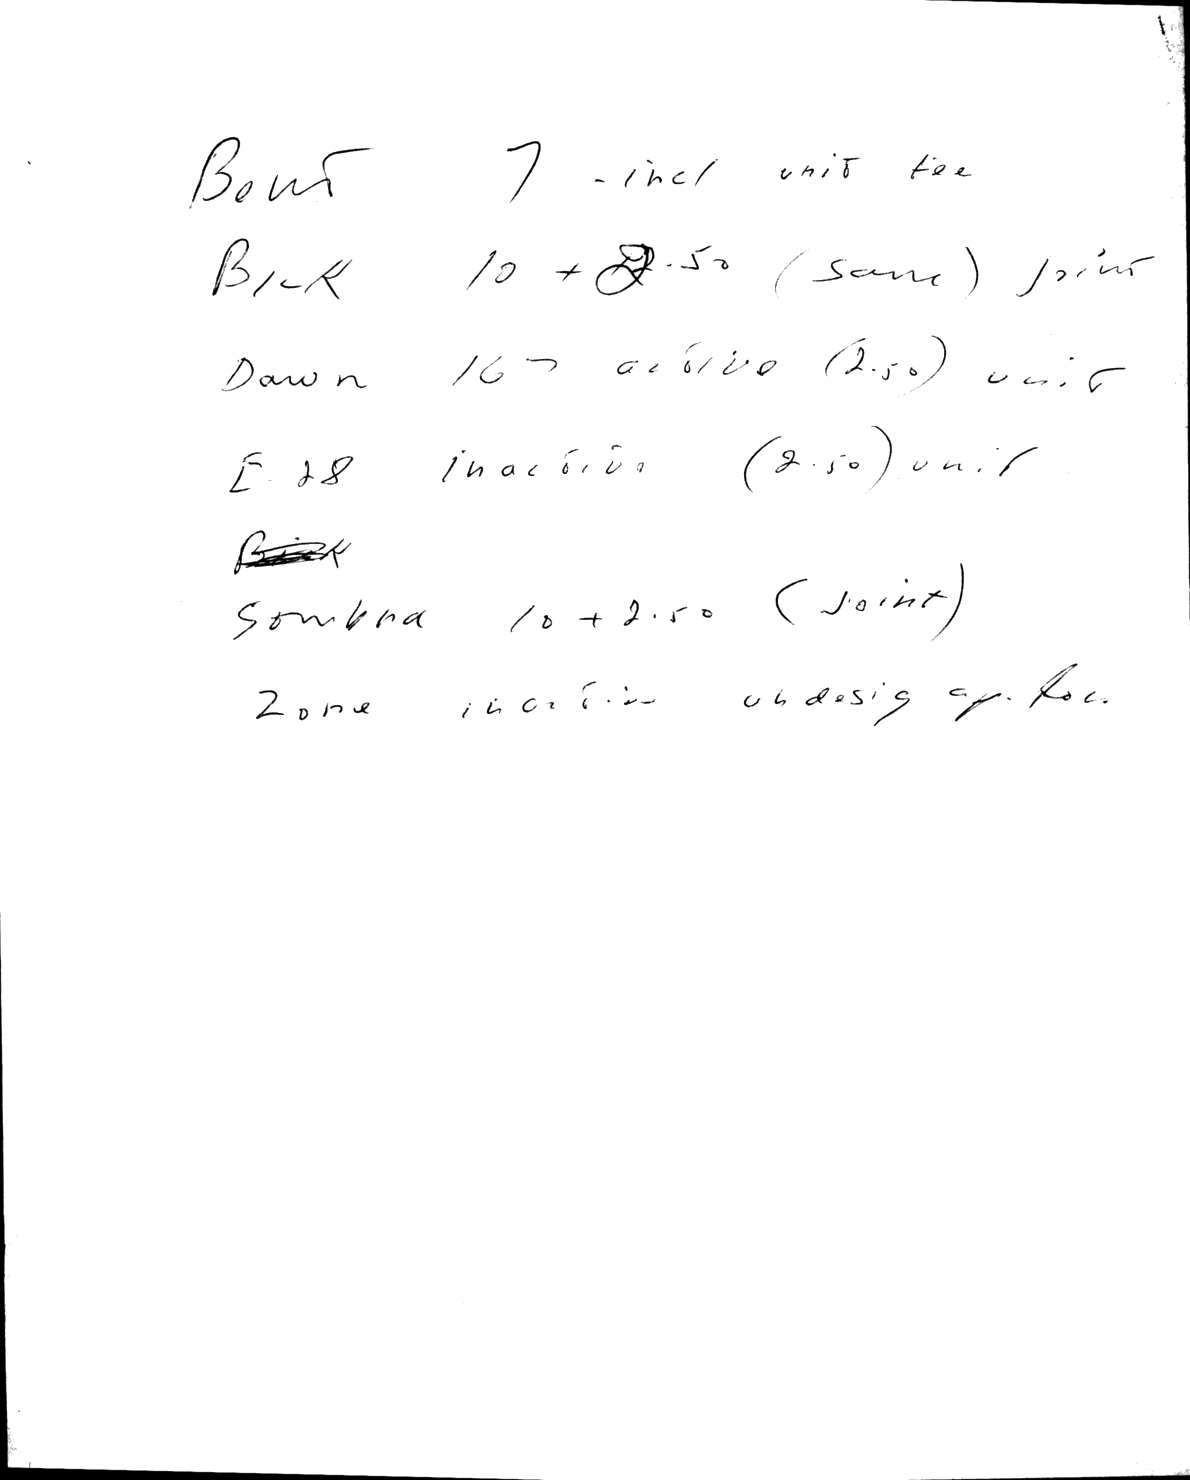 Bent 7 - incl unit fee
Bick 10 + 2.50 (same) joint
Dawn 167 active (2.50) unit
E. 28 inactive (2.50) unit
Sombra 10 + 2.50 (joint)
Zone inactive undesig